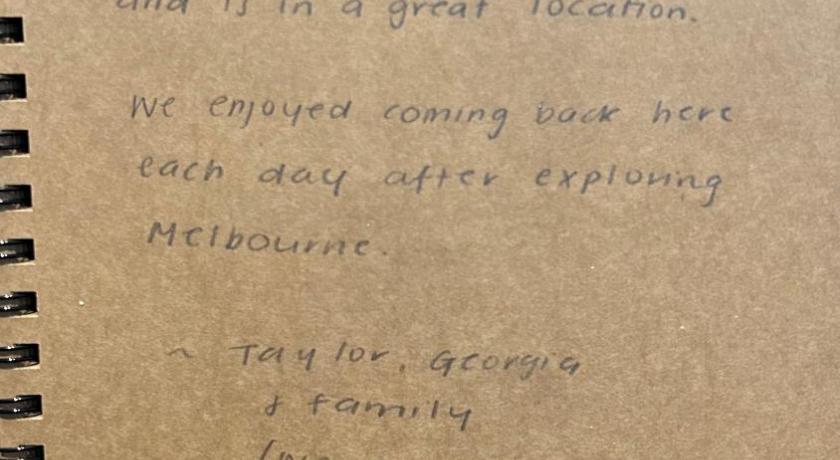 and is in a great location.
We enjoyed coming back here
each day after exploring
Melbourne.
~ Taylor, Georgia
& family